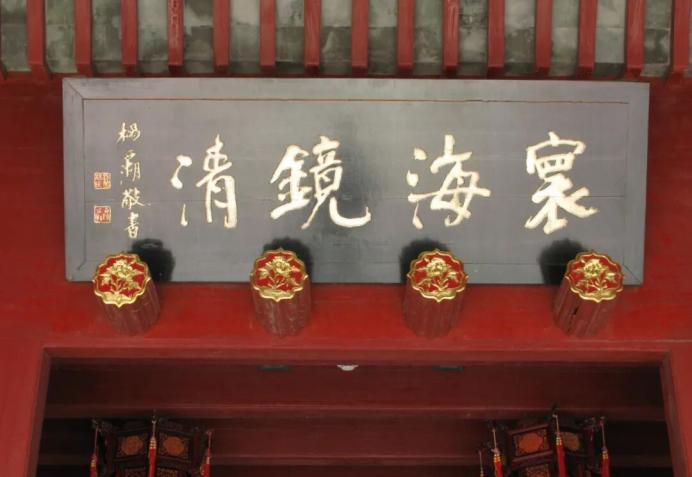 寰海鏡清
楊霸敬書